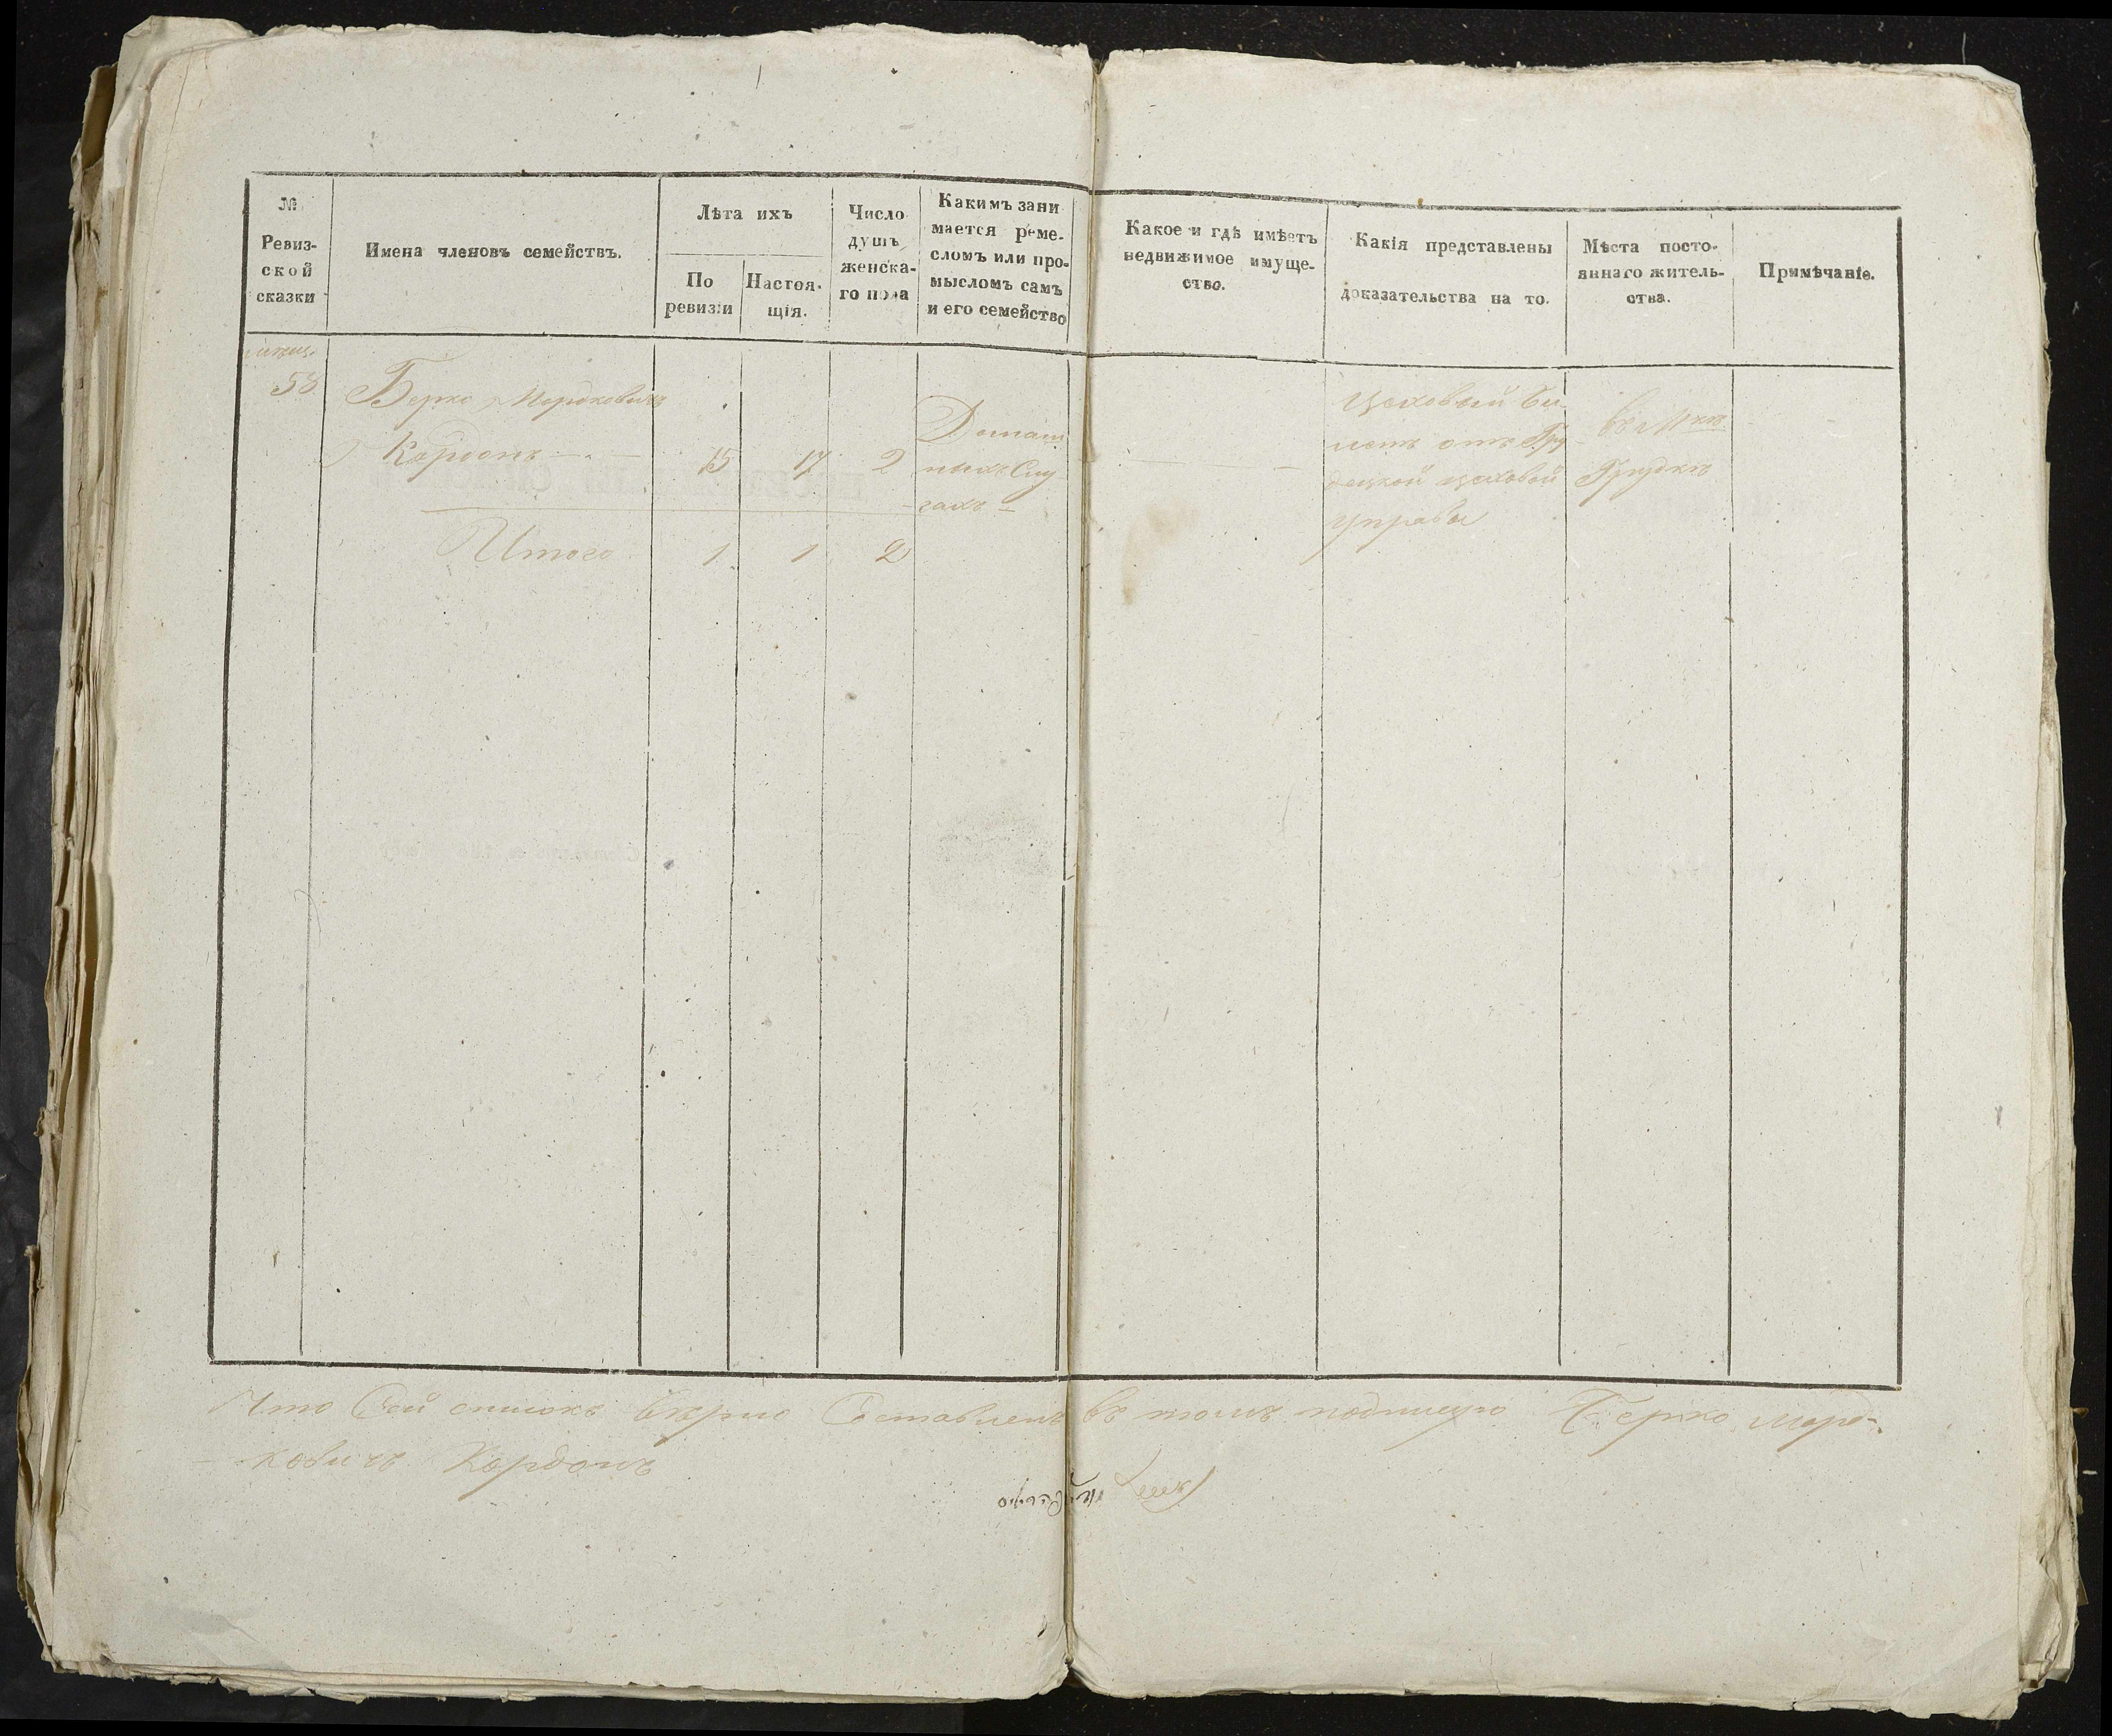 №
Ревиз-
ской
сказки
Имена членовъ семействъ.
Лѣта ихъ
По
ревизіи
Настоя-
щія.
Число
душъ
женска-
го пола
Какимъ зани
мается реме-
сломъ или про-
мысломъ самъ
и его семейство
Какое и гдѣ имѣетъ
недвижимое имуще-
ство.
Какія представлены
доказательства на то.
Мѣста посто-
яннаго житель-
ства.
Примѣчаніе.
58
Берко Мордковичъ
Кордонъ 15 17 2
Домаш
ныхъ Слу
гахъ
Цеховый би-
летъ отъ Гру
децкой цеховой
управы
въ М
Грудкѣ
Итого 1 1 2
Что Сей списокъ вѣрно Составленъ въ томъ подпишуго Берко Морд-
ковичъ Кордонъ